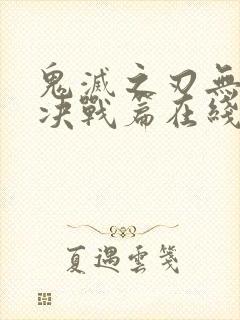 鬼滅之刃無
决戰篇在綫
夏遇雲箋